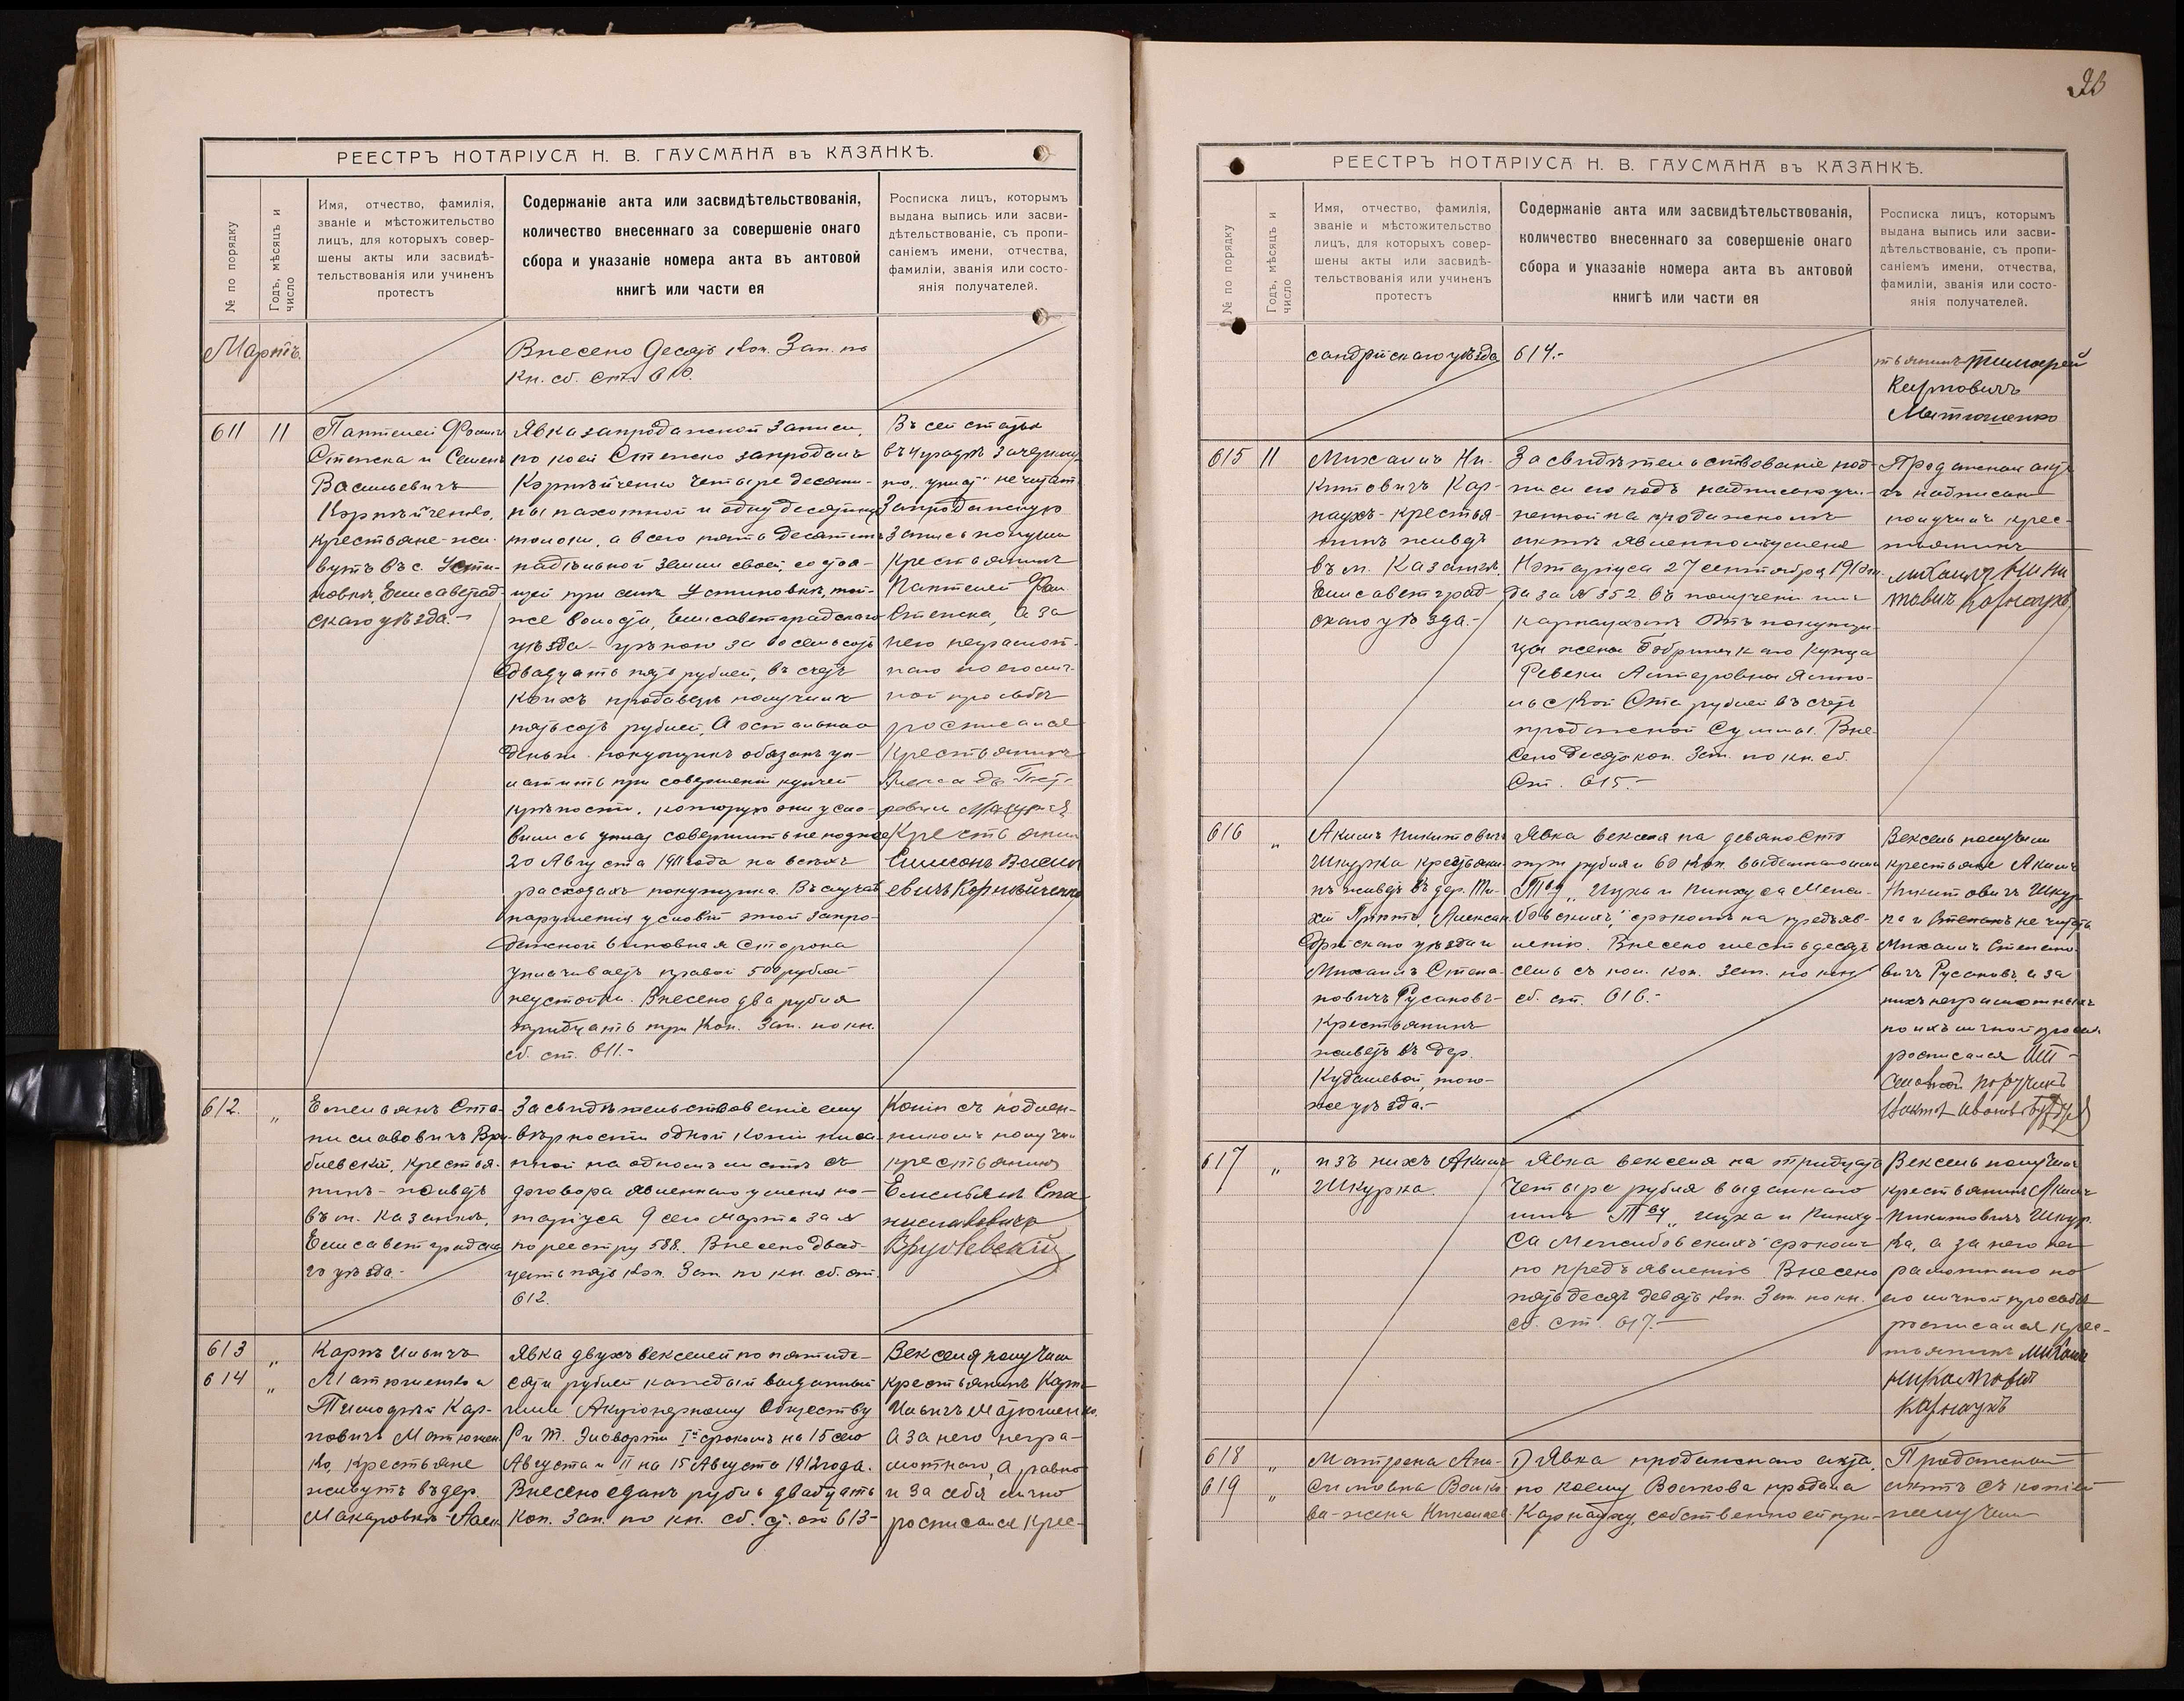 РЕЕСТРЪ НОТАРІУСА Н. В. ГАУСМАНА въ КАЗАНКѢ.
№ по порядку
Годъ, мѣсяцъ и
число
Имя, отчество, фамилія,
званіе и мѣстожительство
лицъ, для которыхъ совер-
шены акты или засвидѣ-
тельствованія или учиненъ
протестъ
Содержаніе акта или засвидѣтельствованія,
количество внесеннаго за совершеніе онаго
сбора и указаніе номера акта въ актовой
книгѣ или части ея
Росписка лицъ, которымъ
выдана выпись или засви-
дѣтельствованіе, съ пропи-
саніемъ имени, отчества,
фамиліи, званія или состо-
янія получателей.
Мартъ.
Внесено десять коп. Зап. по
Кн. сб. ст. 610.
611
11
Пантелей
Стенска и Семенъ
Васильевичъ
крестьяне жи-
вутъ въ с. Усти-
новкѣ, Елисаветград-
скаго уѣзда.-
Явка запродажной записи,
по коей Стенско запродалъ
четыре десяти-
ны пахотной и одну десятину
толоки, а всего пять десятинъ
надѣльной земли своей, состоя-
щей при селѣ Устиновкѣ, той-
же волости, Елисаветградскаго
уѣзда - цѣною за восемьсотъ
двадцать пять рублей, въ счетъ
коихъ продавецъ получилъ
пятьсотъ рублей, а остальные
деньги покупщикъ обязанъ уп-
латить при совершеніи купчей
крѣпости, которую они усло-
вились совершить не позднее
20 Августа 1911 года на всѣхъ
расходахъ покупщика. Въ случаѣ
нарушенія условій этой запро-
дажной виновная сторона
уплачиваетъ правой 500 рублей
неустойки. Внесено два рубля
тридцать три коп. Зап. по кн.
сб. ст. 611.-
Въ сей статьѣ
не читать.
Запродажную
запись получилъ
крестьянинъ
Пантелей
Стенска, а за
него неграмот-
наго по его лич-
ной просьбѣ
росписался
крестьянинъ
Крестьянинъ
612.
„
Емельянъ Ста-
ниславовичъ Вру-
блевскій, крестья-
нинъ - живетъ
въ м. Казанкѣ,
Елисаветградска-
го уѣзда.-
Засвидѣтельствованіе ему
вѣрности одной копіи писа-
нной на одномъ листѣ съ
договора явленнаго у меня но-
таріуса 9 сего Марта за №
по реестру 588. Внесено двад-
цать пять коп. Зап. по кн. сб. ст.
612.
Копію съ подлин-
никомъ получилъ
крестьянинъ
Емельянъ Ста-
ниславовичъ
Врублевскій
613
614
„
„
Карпъ Ильичъ
Матюшенко и
Тимофѣй Кар-
повичъ Матюшен-
ко, крестьяне
живутъ въ дер.
Макаровкѣ - Алек-
Явка двухъ векселей по пятиде-
сяти рублей каждый выданный
ими Акціонерному Обществу
Р. и Т. Эльворти Iй срокомъ на 15 сего
Августа и II на 15 Августа 1912 года.
Внесено одинъ рубль двадцать
коп. Зап. по кн. сб. ст. ст 613-
Векселя получилъ
крестьянинъ Карпъ
Ильичъ Матюшенко,
а за него негра-
мотнаго, а равно
и за себя лично
росписался крес-
РЕЕСТРЪ НОТАРІУСА Н. В. ГАУСМАНА въ КАЗАНКѢ.
№ по порядку
Годъ, мѣсяцъ и
число
Имя, отчество, фамилія,
званіе и мѣстожительство
лицъ, для которыхъ совер-
шены акты или засвидѣ-
тельствованія или учиненъ
протестъ
Содержаніе акта или засвидѣтельствованія,
количество внесеннаго за совершеніе онаго
сбора и указаніе номера акта въ актовой
книгѣ или части ея
Росписка лицъ, которымъ
выдана выпись или засви-
дѣтельствованіе, съ пропи-
саніемъ имени, отчества,
фамиліи, званія или состо-
янія получателей.
сандрійскаго уѣзда
614.-
тьянинъ Тимофей
Карповичъ
Матюшенко
615
11
Михаилъ Ни-
китовичъ Кар-
наухъ - крестья-
нинъ живетъ
въ м. Казанкѣ,
Елисаветград-
скаго уѣзда.-
Засвидѣтельствованіе под-
писи его подъ надписью учи-
ненной на продажномъ
актѣ явленномъ у меня
Нотаріуса 27 сентября 1910 го-
да за № 352. въ полученіи имъ
Карнаухомъ отъ покупщи-
цы жены Бобринецкаго Купца
Ревеки
Ста рублей въ счетъ
продажной суммы. Вне-
сено десять коп. Зап. по кн. сб.
ст. 615.-
Продажный актъ
съ надписью
получилъ крес-
тьянинъ
Михаилъ Ники
товичъ Карнаухъ
616
„
Акимъ Никитовичъ
Шкурка крестьяни-
нъ живетъ въ дер. Ти-
хій Пріютъ, Алексан-
дрійскаго уѣзда и
Михаилъ Степа-
новичъ Русановъ -
крестьянинъ
живетъ въ дер.
Кудашевой, того-
же уѣзда.-
Явка векселя на девяносто
три рубля и 60 коп. выданнаго ими
Тву „Ицка и Пинхуса Меж-
бовскихъ“ срокомъ на предъяв-
леніи. Внесено шестьдесятъ
семь съ пол. коп. Зап. по кн.
сб. ст. 616.-
Вексель получили
крестьяне Акимъ
Никитовичъ Шкур-
ка и Степанъ не читать
Михаилъ Степано-
вичъ Русановъ, а за
нихъ неграмотныхъ
по ихъ личной просьбѣ
росписался
поручикъ
617
„
изъ нихъ Акимъ
Шкурка.
Явка векселя на тридцать
четыре рубля выданнаго
имъ Тву „Ицка и Пинху-
са Межибовскихъ“ срокомъ
по предъявленію. Внесено
пятьдесятъ девять коп. Зап. по кн.
сб. ст. 617.-
Вексель получилъ
крестьянинъ Акимъ
Никитовичъ Шкур-
ка, а за него нег-
рамотнаго по
его личной просьбѣ
росписался крес-
тьянинъ Михаилъ
Карнаухъ
618
619
„
„
Матрена
ва - жена
I) Явка продажнаго акта,
по коему продала
Карнауху, собственно ей при-
Продажный
актъ съ копіей
получилъ